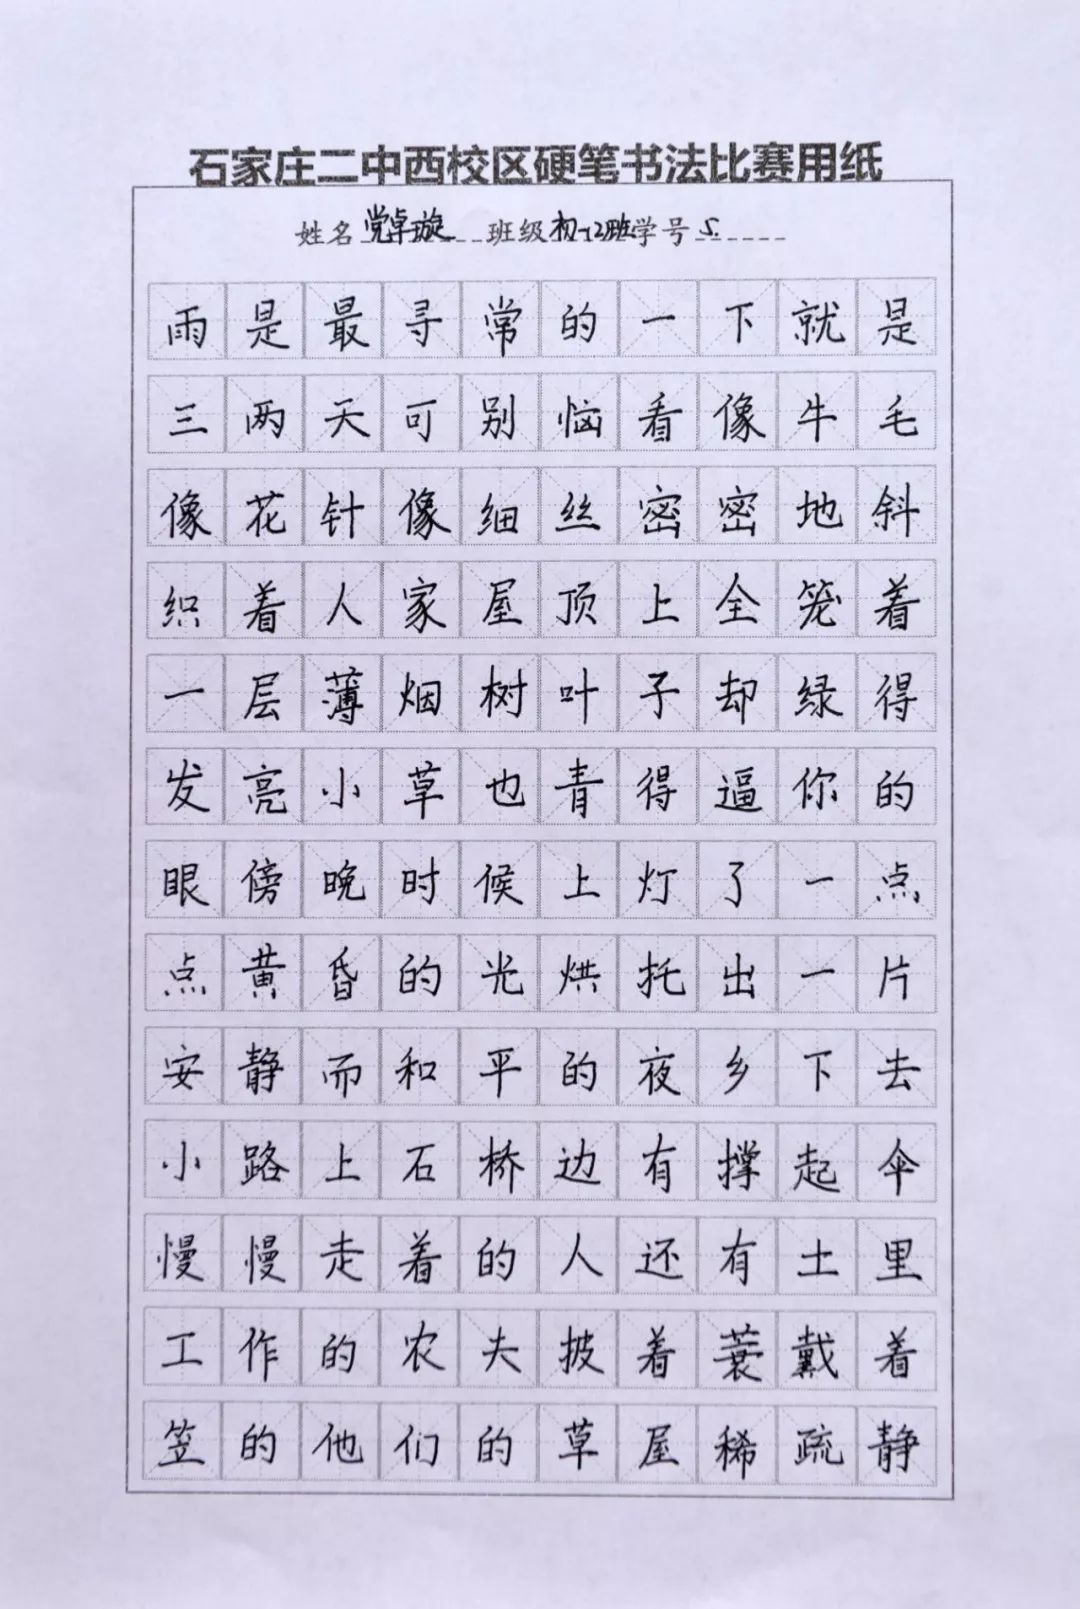 石家庄二中西校区硬笔书法比赛用纸
姓名党卓璇班级初一12班学号5.
雨是最寻常的一下就是
三两天可别恼看像牛毛
像花针像细丝密密地斜
织着人家屋顶上全笼着
一层薄烟树叶子却绿得
发亮小草也青得逼你的
眼傍晚时候上灯了一点
点黄昏的光烘托出一片
安静而和平的夜乡下去
小路上石桥边有撑起伞
慢慢走着的人还有土里
工作的农夫披着蓑戴着
笠的他们的草屋稀疏静